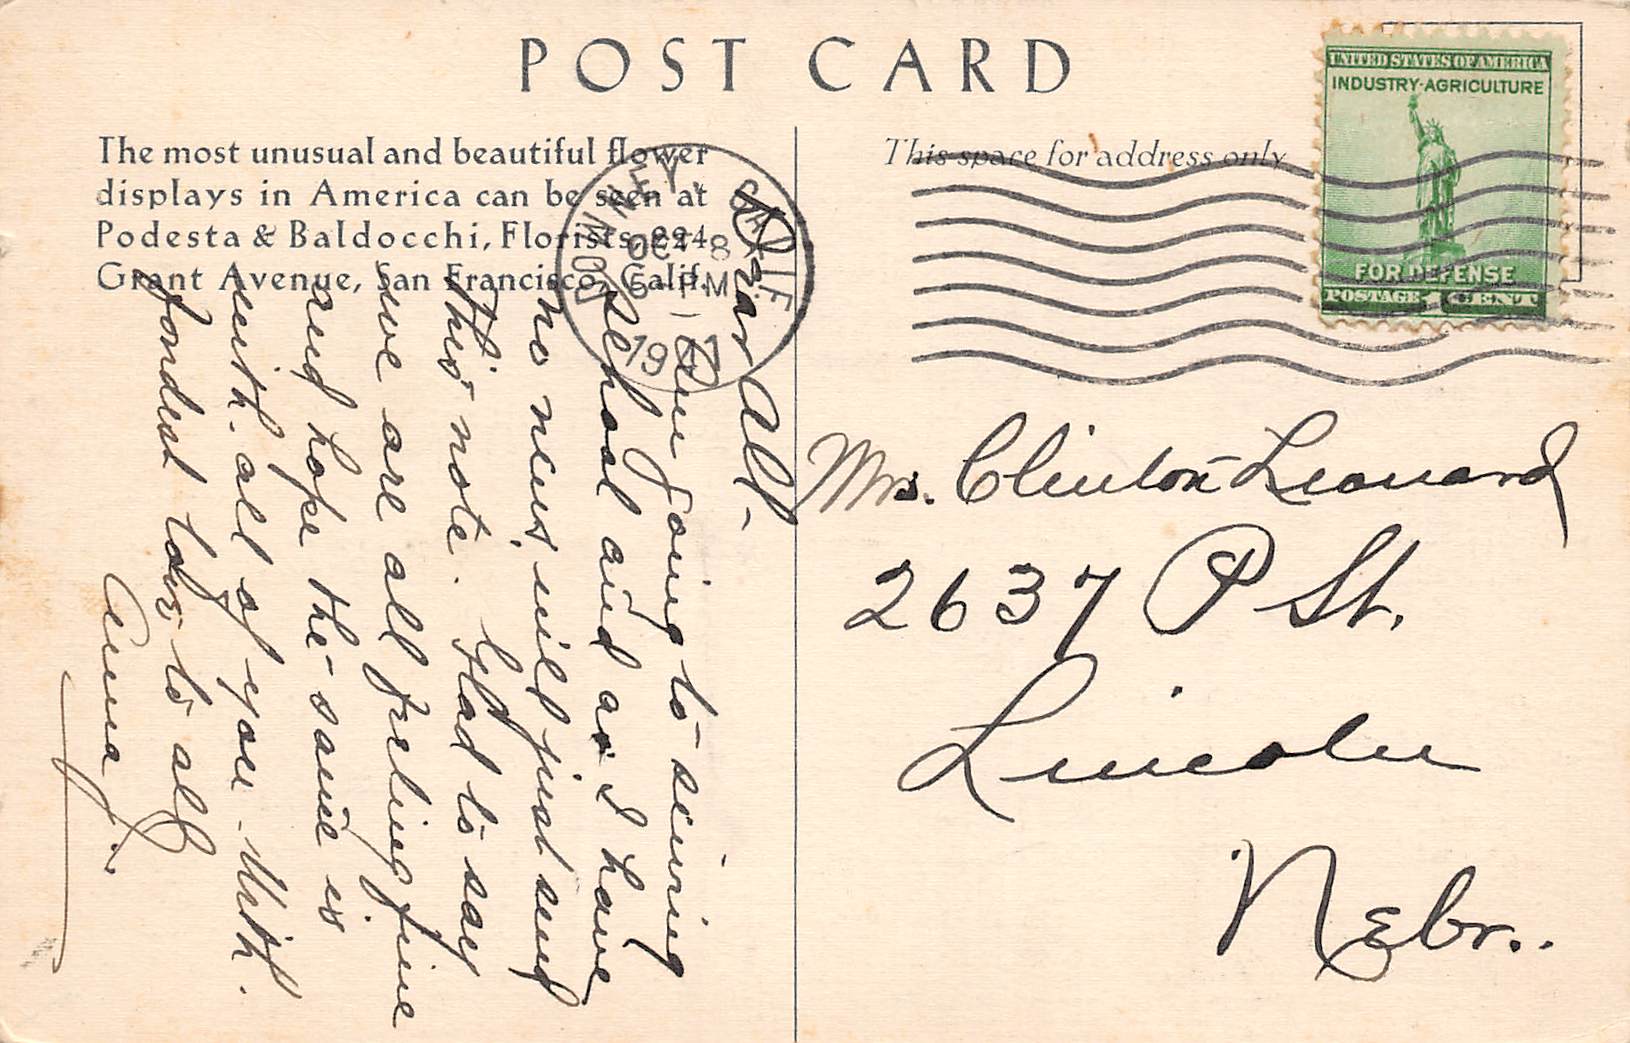 POST CARD
The most unusual and beautiful flower
displays in America can be seen at
Podesta & Baldocchi, Florists, 224
Grant Avenue, San Francisco, Calif.
This space for address only
UNITED STATES OF AMERICA
INDUSTRY-AGRICULTURE
FOR DEFENSE
POSTAGE 1 CENT
DOWNEY, CALIF.
OCT 8
PM
1941
Dear All-
Am going to sewing
school and as I have
no news will just send
this note. Glad to say
we are all feeling fine
and hope the same is
with all of you. With
fondest love to all
Anna
Mrs. Clinton Leonard
2637 P St.
Lincoln
Nebr.